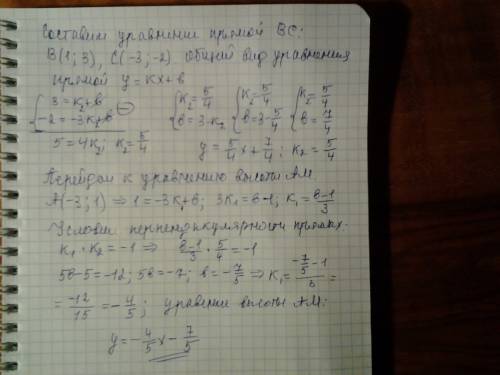 Составим уравнение прямой BC:
B(1; 3), C(-3; -2) Общий вид уравнения
прямой y = kx + b
{ 3 = k₂ + b
-2 = -3k₂ + b ⊖
5 = 4k₂; k₂ = 5/4
{ k₂ = 5/4
b = 3 - k₂
{ k₂ = 5/4
b = 3 - 5/4
{ k₂ = 5/4
b = 7/4
y = 5/4 x + 7/4; k₂ = 5/4
Перейдём к уравнению высоты AM
A(-3; 1) ⇒ 1 = -3k₁ + b; 3k₁ = b - 1; k₁ = (b-1)/3
Условие перпендикулярности прямых:
k₁ · k₂ = -1 ⇒ (b-1)/3 · 5/4 = -1
5b - 5 = -12; 5b = -7; b = -7/5 ⇒ k₁ = (-7/5 - 1)/3 =
= -12/15 = -4/5; уравнение высоты AM:
y = -4/5 x - 7/5